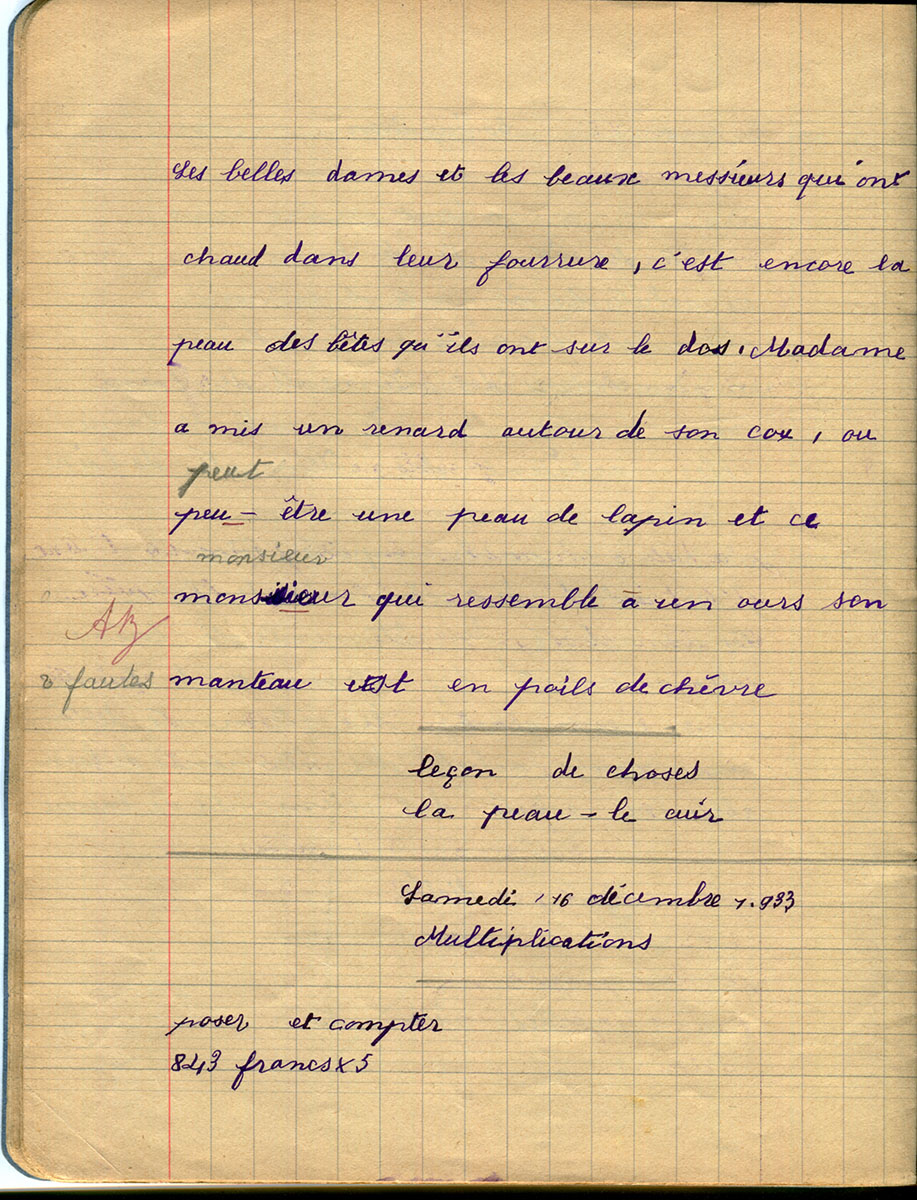 Les belles dames et les beaux messieurs qui ont
chaud dans leur fourrure, c'est encore la
peau des bêtes qu'ils ont sur le dos. Madame
a mis un renard autour de son cou, ou
peut
peu-être une peau de lapin et ce
monsieur
monsieur qui ressemble à un ours son
AB
2 fautes manteau est en poils de chèvre
leçon de choses
la peau - le cuir
Samedi, 16 décembre 1.933
Multiplications
poser et compter
843 francs x 5